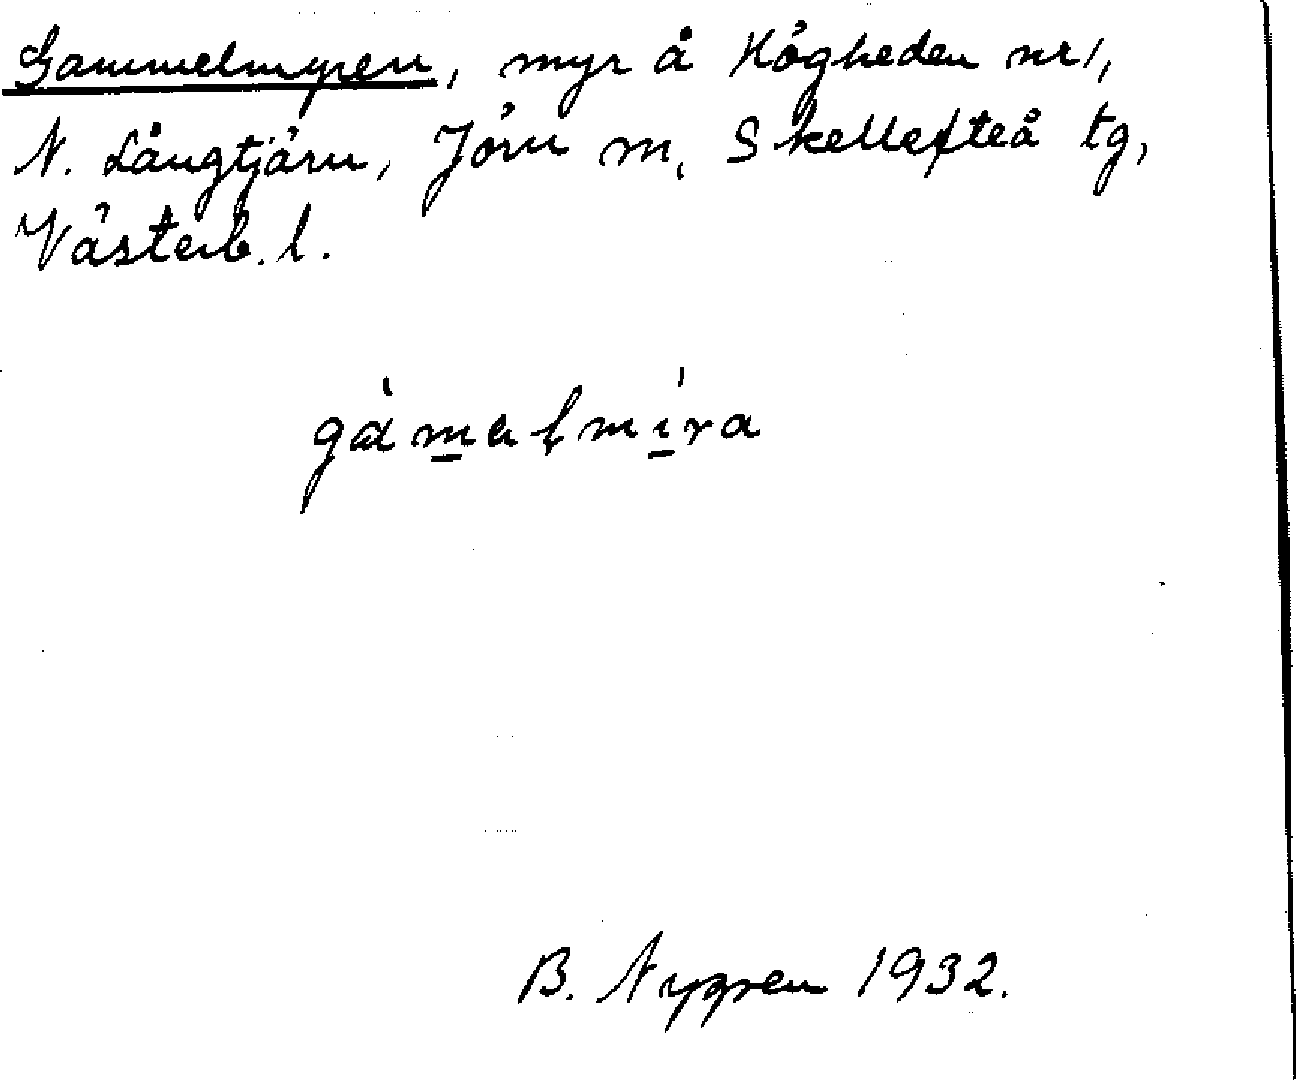 Gammelmyren, myr å Högheden nr 1,
N. Långtjärn, Jörn m, Skellefteå tg,
Västerb. l.
gàmalmíra
B. Nygren 1932.